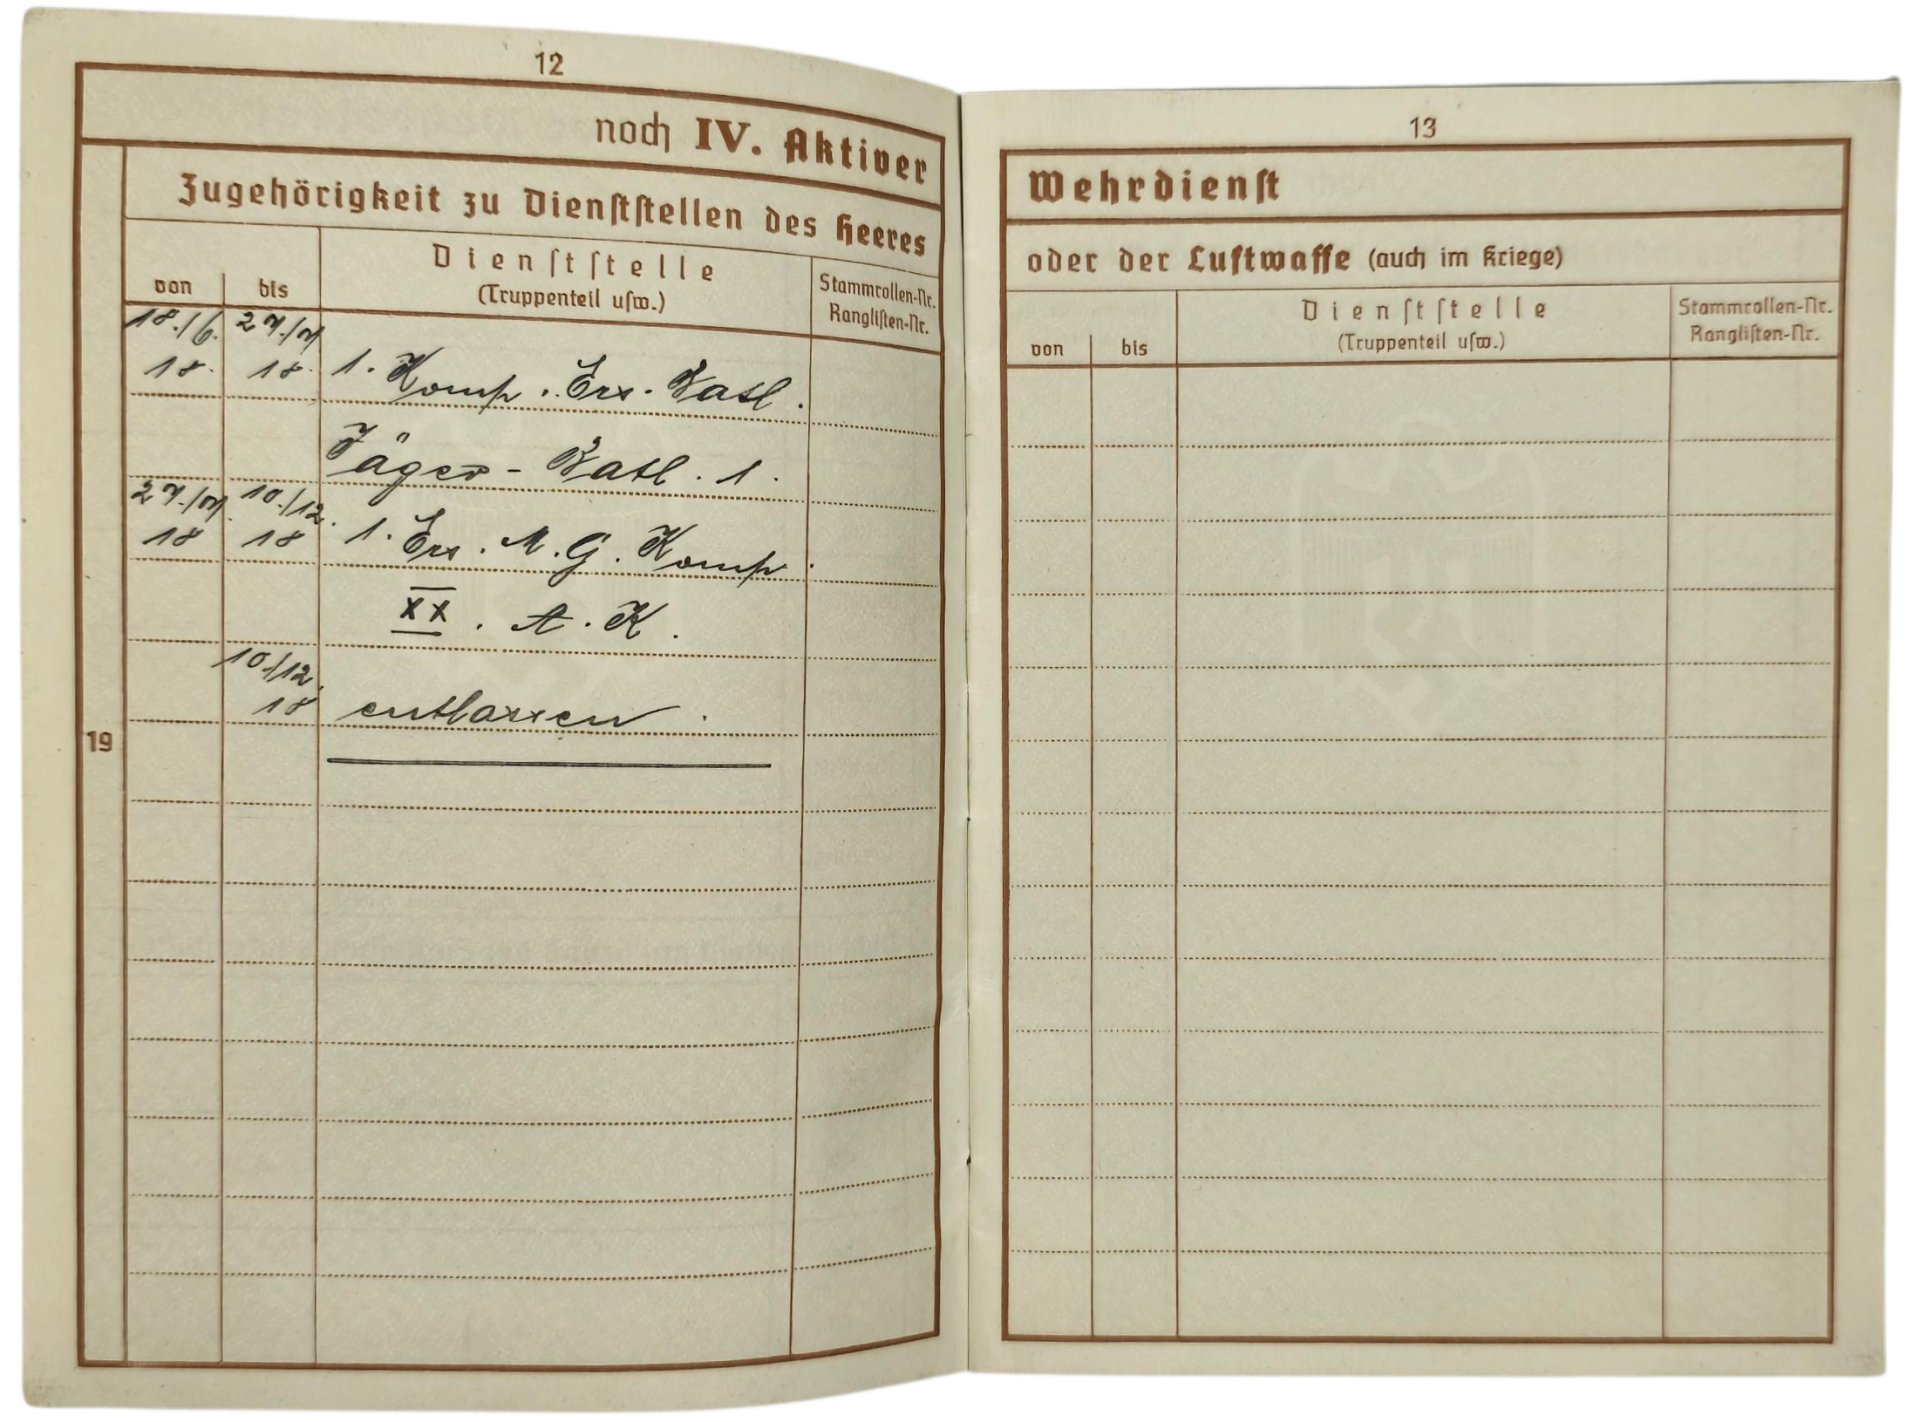 12
noch IV. Aktiver
Zugehörigkeit zu Dienststellen des Heeres
von bis Dienststelle Stammrollen-Nr.
(Truppenteil usw.) Ranglisten-Nr.
18./6. 27./7.
18. 18. 1. Komp. Ers. Batl.
Jäger-Batl. 1.
27./7. 10./12.
18 18 1. Ers. M. G. Komp.
XX. A. K.
10./12.
18 entlassen.
19
13
Wehrdienst
oder der Luftwaffe (auch im Kriege)
von bis Dienststelle Stammrollen-Nr.
(Truppenteil usw.) Ranglisten-Nr.